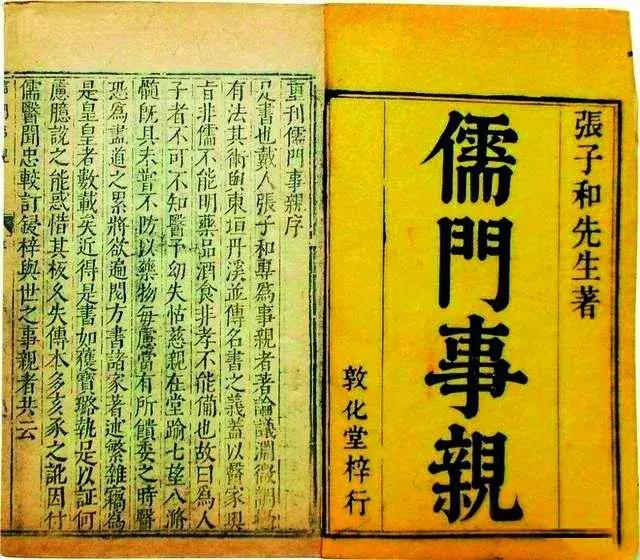 張子和先生著
儒門事親
敦化堂梓行
重刊儒門事親序
是書也戴人張子和專為事親者著論議淵微調
有法其術與東垣丹溪並傳名書之義蓋以醫家奧
旨非儒不能明藥品酒食非孝不能備也故曰為人
子者不可不知醫予幼失怙慈親在堂踰七望八滫
髓既具未嘗不防以藥物每慮當有所饋委之時醫
恐為盡道之累將欲遍閱方書諸家著述繁雜竊為
是皇皇者數載矣近得是書如獲寶璐執足以証何
慮臆說之能惑惜其核久失傳本多亥豕之訛因付
儒醫聞忠較訂鋟梓與世之事親者共云